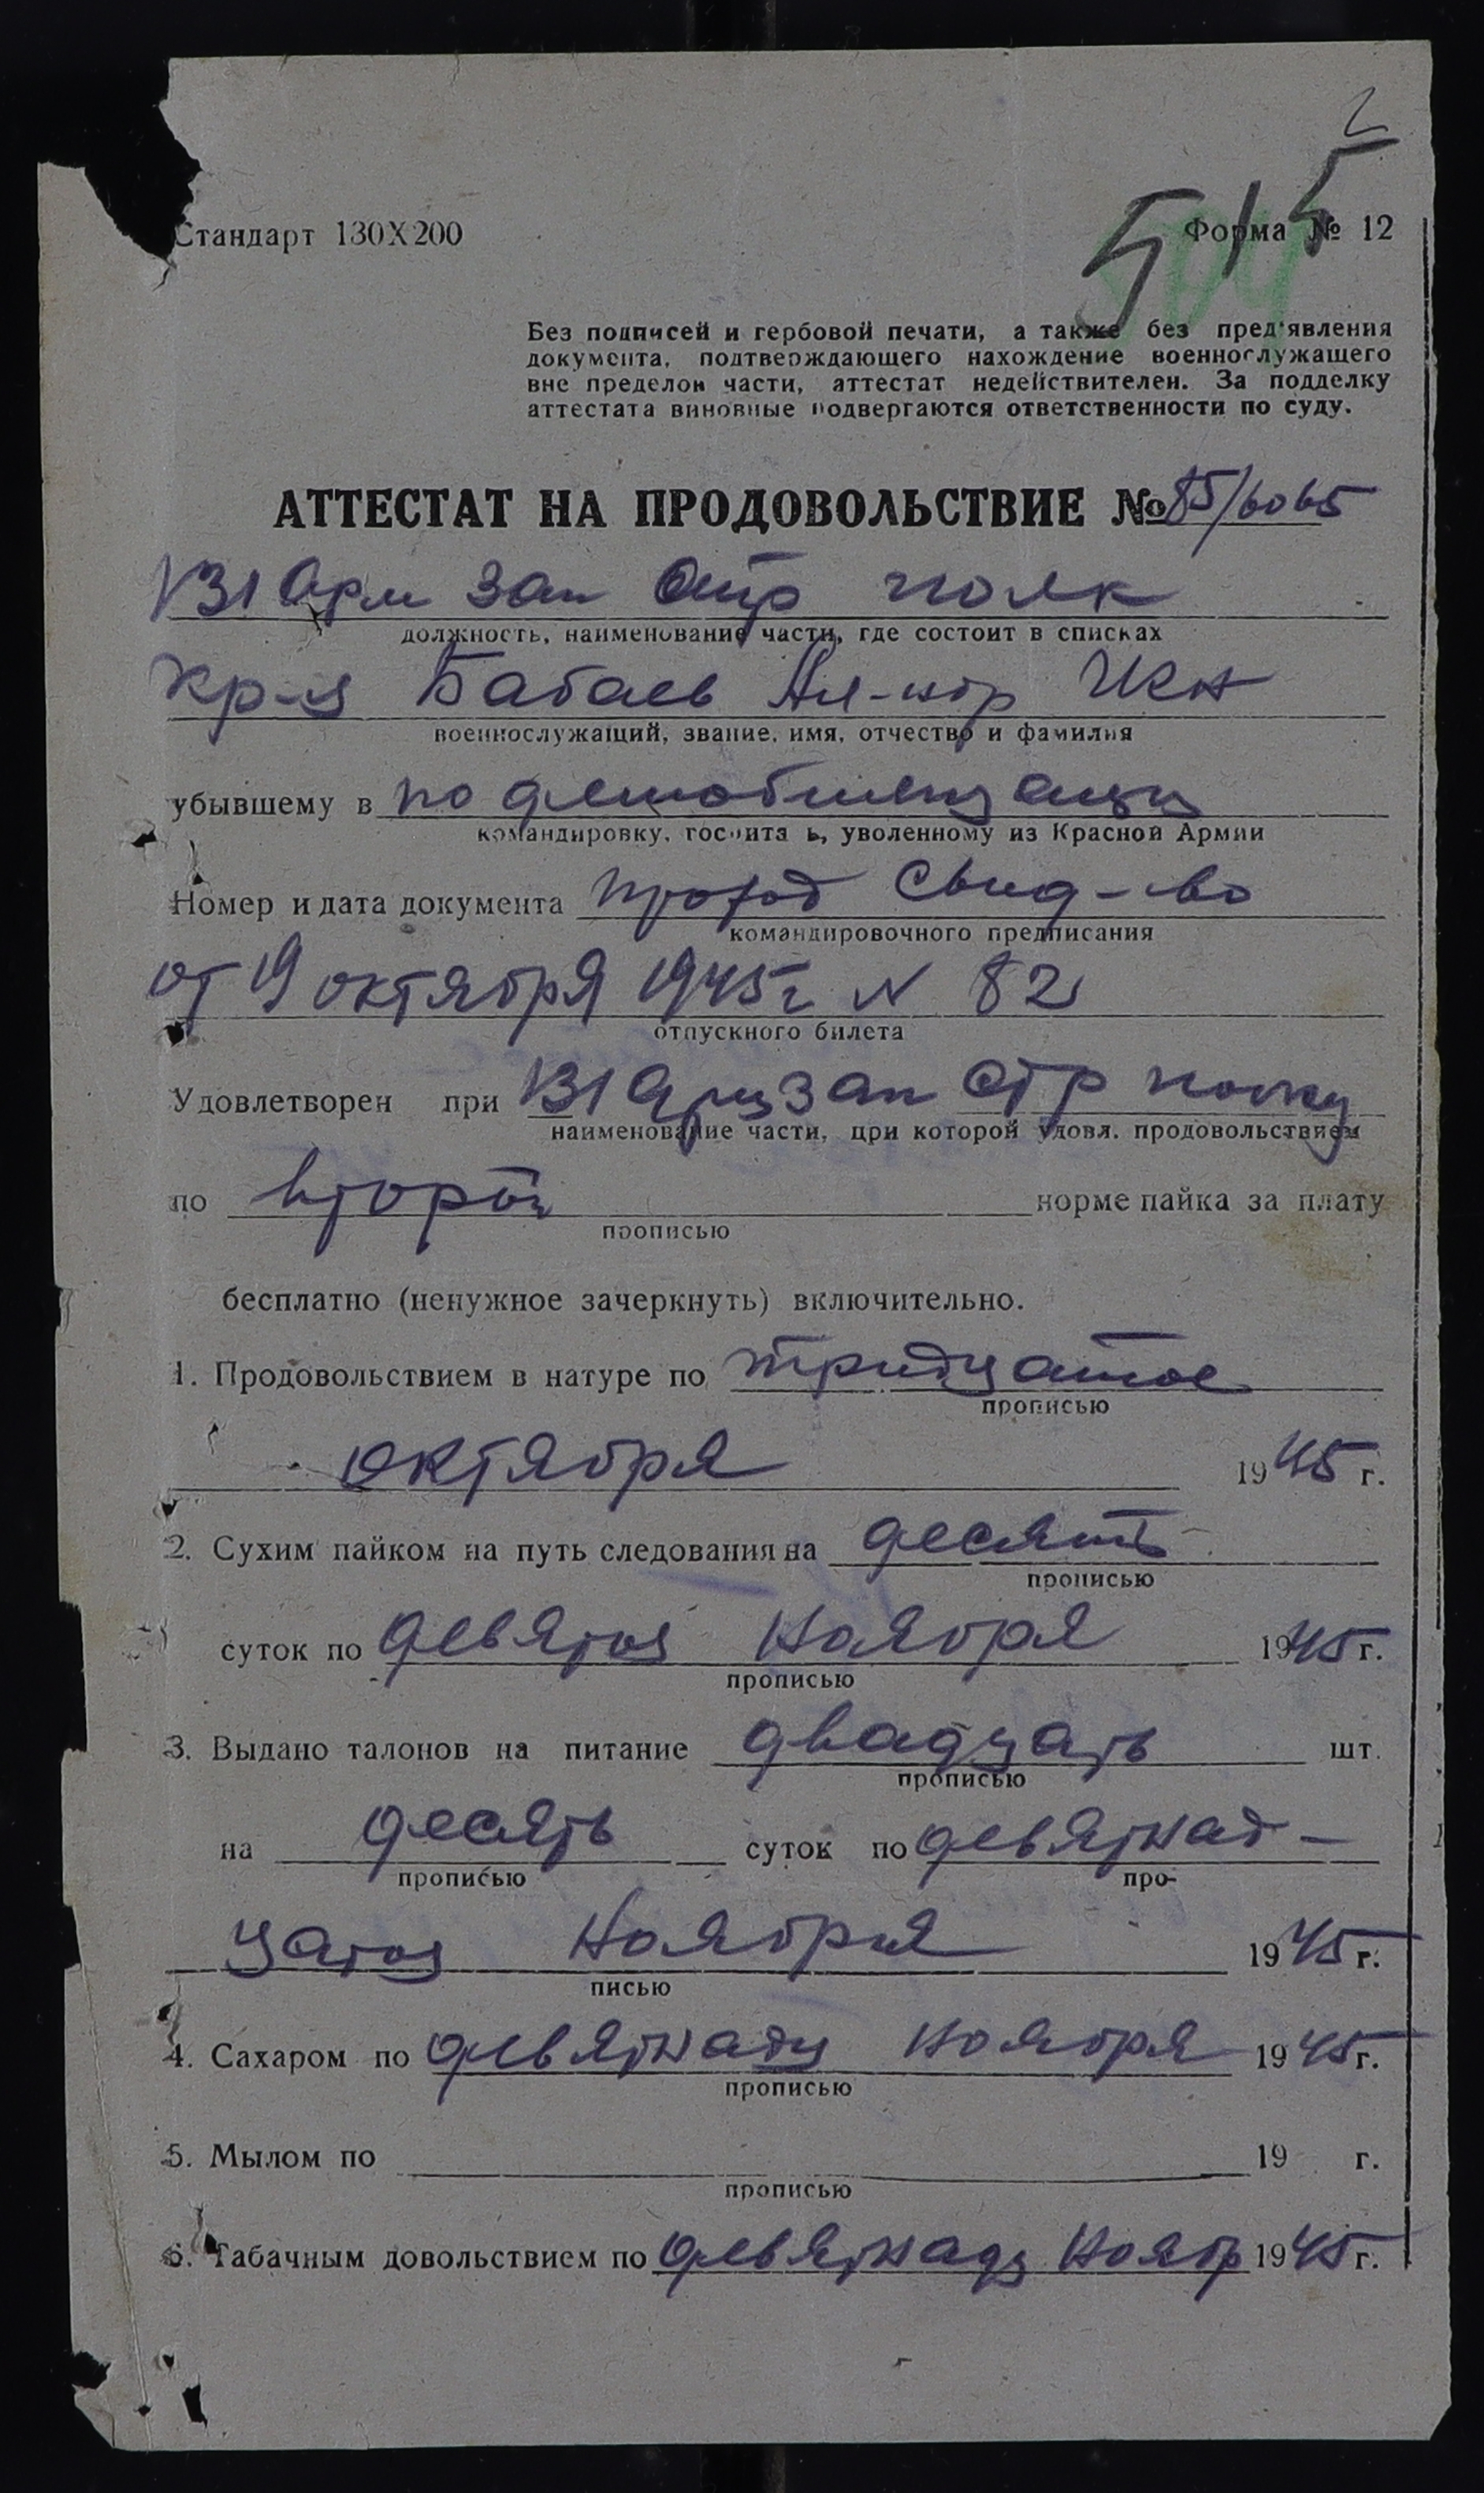 515
Стандарт 130Х200
Форма № 12
Без подписей и гербовой печати, а также без пред'явления
документа, подтверждающего нахождение военнослужащего
вне пределов части, аттестат недействителен. За подделку
аттестата виновные подвергаются ответственности по суду.
АТТЕСТАТ НА ПРОДОВОЛЬСТВИЕ № 85/6065
131 Арм Зап Стр полк
должность, наименование части, где состоит в списках
кр-ц Бабаев
военнослужащий, звание, имя, отчество и фамилия
убывшему в по демобилизации
командировку, госпиталь, уволенному из Красной Армии
Номер и дата документа проход Свид-во
командировочного предписания
от 19 октября 1945 г N 82
отпускного билета
Удовлетворен при 131 Арм Зап Стр полку
наименование части, при которой удовл. продовольствием
по второй норме пайка за плату
прописью
бесплатно (ненужное зачеркнуть) включительно.
1. Продовольствием в натуре по тридцатое
прописью
октября 1945 г.
2. Сухим пайком на путь следования на десять
прописью
суток по девятое ноября 1945 г.
прописью
3. Выдано талонов на питание двадцать шт.
прописью
на десять суток по девятнад-
прописью про-
цатое ноября 1945 г.
писью
4. Сахаром по девятнадц ноября 1945 г.
прописью
5. Мылом по 19 г.
прописью
6. Табачным довольствием по девятнадц Ноябр 1945 г.